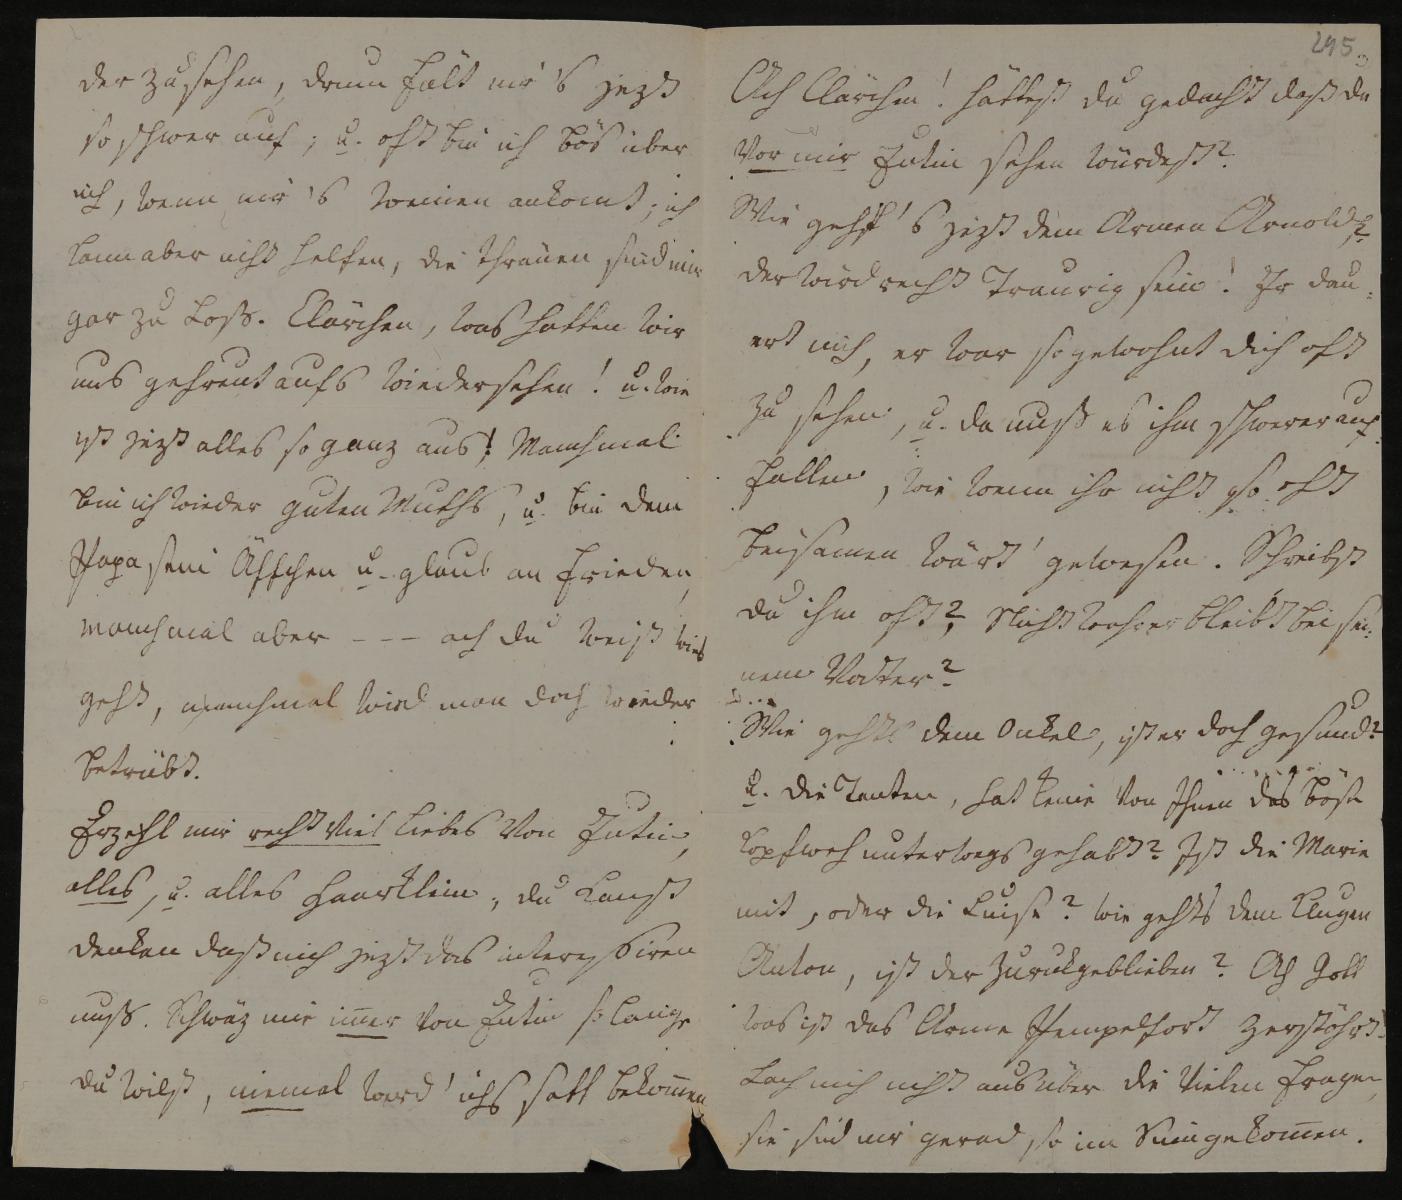 der zu sehen, drum fält mir's jezt
so schwer auf; u. oft bin ich bös über
mich, wenn mir's weinen ankomt; ich
kann aber nicht helfen, die Thränen sind mir
gar zu Loss. Clärchen, was hatten wir
uns gefreut aufs wiedersehen! u. wie
ist jezt alles so ganz aus! Manchmal
bin ich wieder guten Muths, u. bin dem
Papa sein Äffchen u. glaub an Frieden,
manchmal aber --- ach du weist wies
geht, manchmal wird man doch wieder
betrübt.
Erzehl mir recht viel liebes von Eutin,
alles, u. alles haarklein, du kanst
denken dass mich jezt das interessiren
muss. Schwäz mir immer von Eutin so lange
du wilst, niemal werd' ichs satt bekommen
245
Ach Clärchen! hättest du gedacht dass du
vor mir Eutin sehen würdest?
Wie geht's jezt dem Armen Arnold?
der wird recht Traurig sein! Er dau=
ert mich, er war so gewohnt dich oft
zu sehen, u. da muss es ihm schwerer auf=
fallen, wie wenn ihr nicht so oft
beisamen wärt' gewesen. Schreibst
du ihm oft? Nicht wahr er bleibt bei sei=
nem Vatter?
Wie gehts dem Onkel, ist er doch gesund?
u. die Tanten, hat keine von Ihnen das böse
Kopfweh unterwegs gehabt? Ist die Marie
mit, oder die Luise? wie gehts dem Klugen
Anton, ist der zurükgeblieben? Ach Gott
was ist das Arme Pempelfort zerstöhrt!
Lach mich nicht aus über die vielen Fragen,
sie sind mir gerad so im Sinn gekommen.